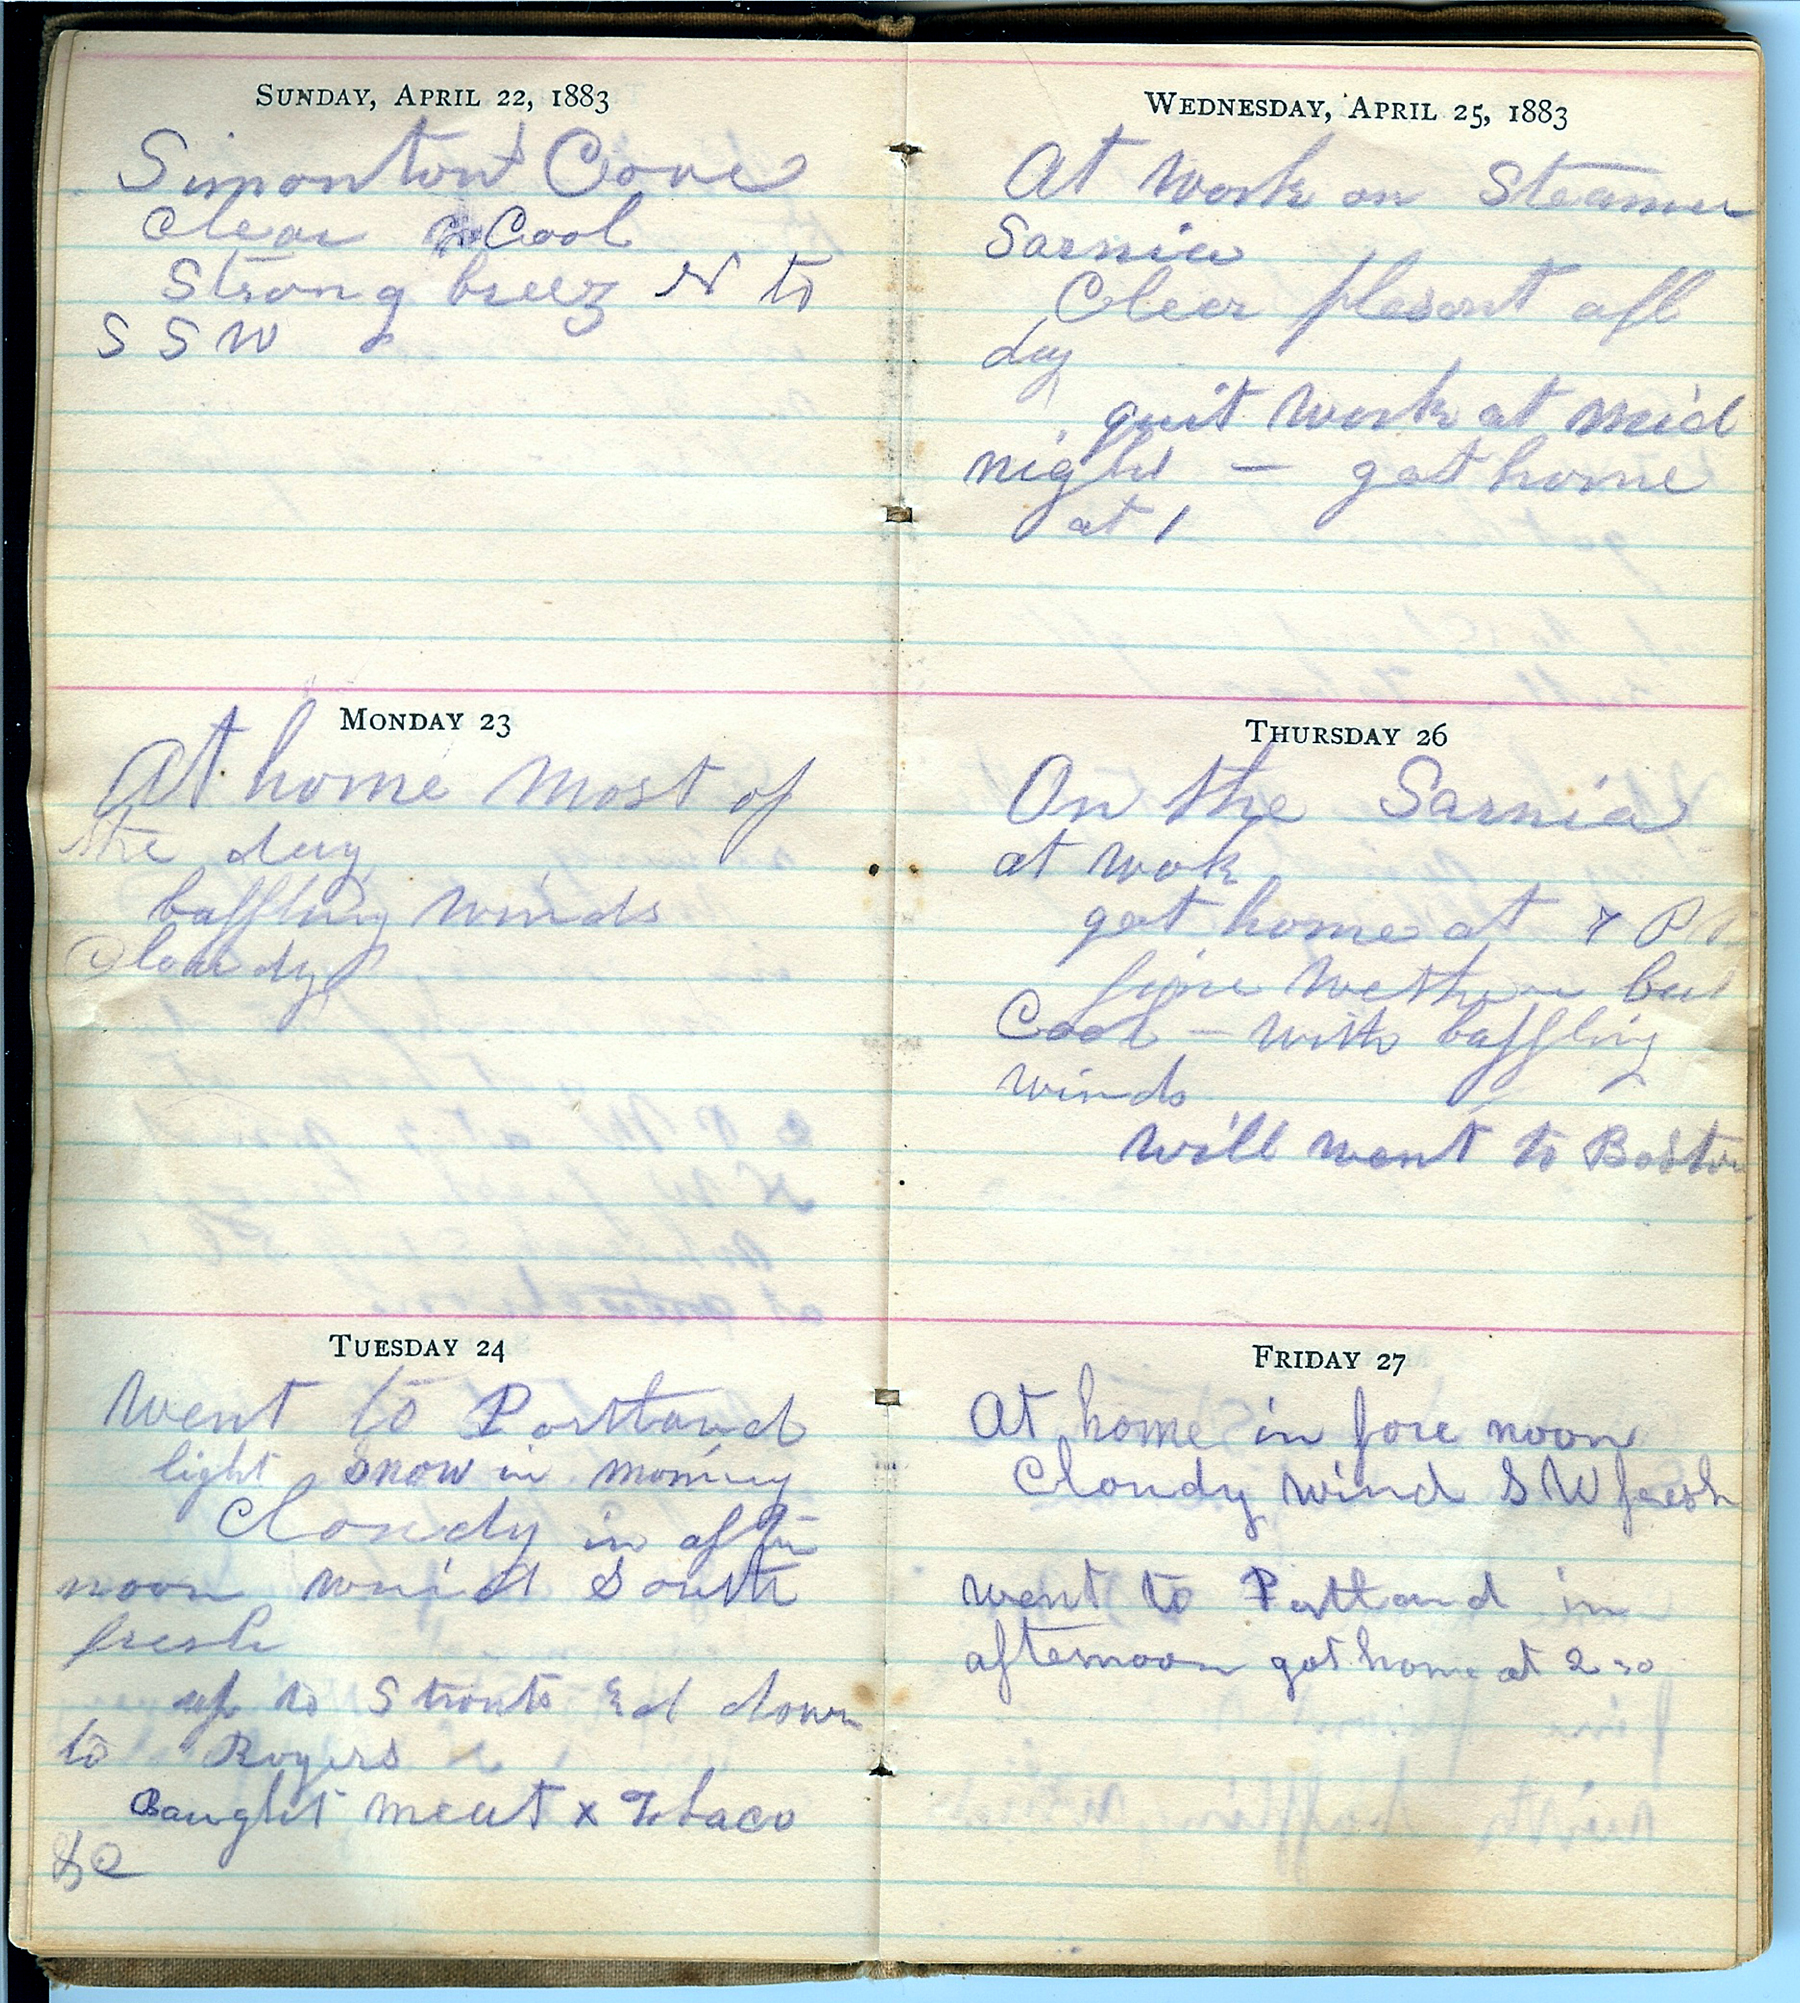 SUNDAY, APRIL 22, 1883
Simonton Cove
Clear & Cool
Strong breez N to
S S W
MONDAY 23
At home most of
the day
baffling winds
Cloudy
TUESDAY 24
Went to Portland
light Snow in morning
Cloudy in after
noon wind South
fresh
up to Strouts Ed down
to Rogers
Baught meat x Tobaco
&c
WEDNESDAY, APRIL 25, 1883
At work on Steamer
Sarnia
Cleer plesent all
day
quit work at mid
night — got home
at 1
THURSDAY 26
On the Sarnia
at wok
got home at 7 P M
fine wether but
Cool — with baffling
winds
will went to Boston
FRIDAY 27
At home in fore noon
Cloudy wind S W fresh
went to Portland in
afternoon got home at 2 30